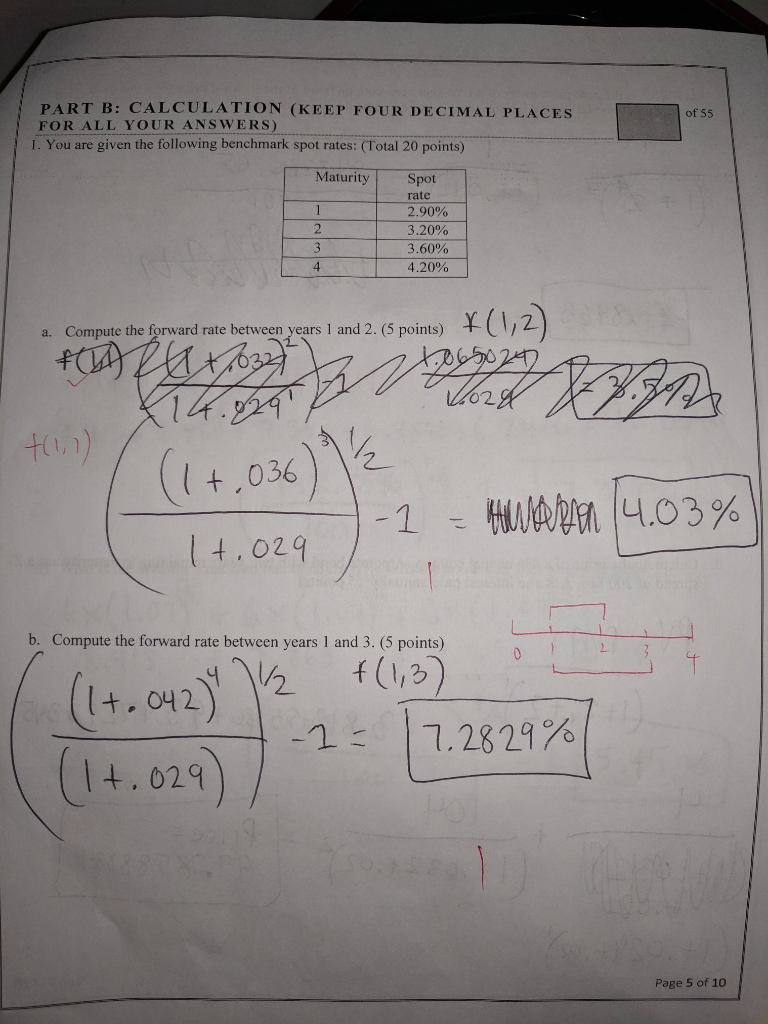 PART B: CALCULATION (KEEP FOUR DECIMAL PLACES
FOR ALL YOUR ANSWERS)
of 55
1. You are given the following benchmark spot rates: (Total 20 points)
Maturity Spot rate
1 2.90%
2 3.20%
3 3.60%
4 4.20%
a. Compute the forward rate between years 1 and 2. (5 points) f(1,2)
(1+.032)²
1+.029¹
-1
1.065024
1.029
f(1,1)
(1+.036)³ 1/2
1+.029
-1 = 4.03%
1
b. Compute the forward rate between years 1 and 3. (5 points)
0 1 2 3 4
f(1,3)
(1+.042)⁴ 1/2
(1+.029)
-1 = 7.2829%
1
Page 5 of 10